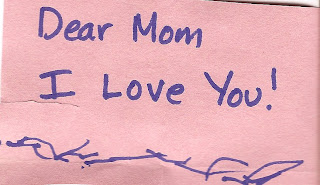 Dear Mom
I Love You!